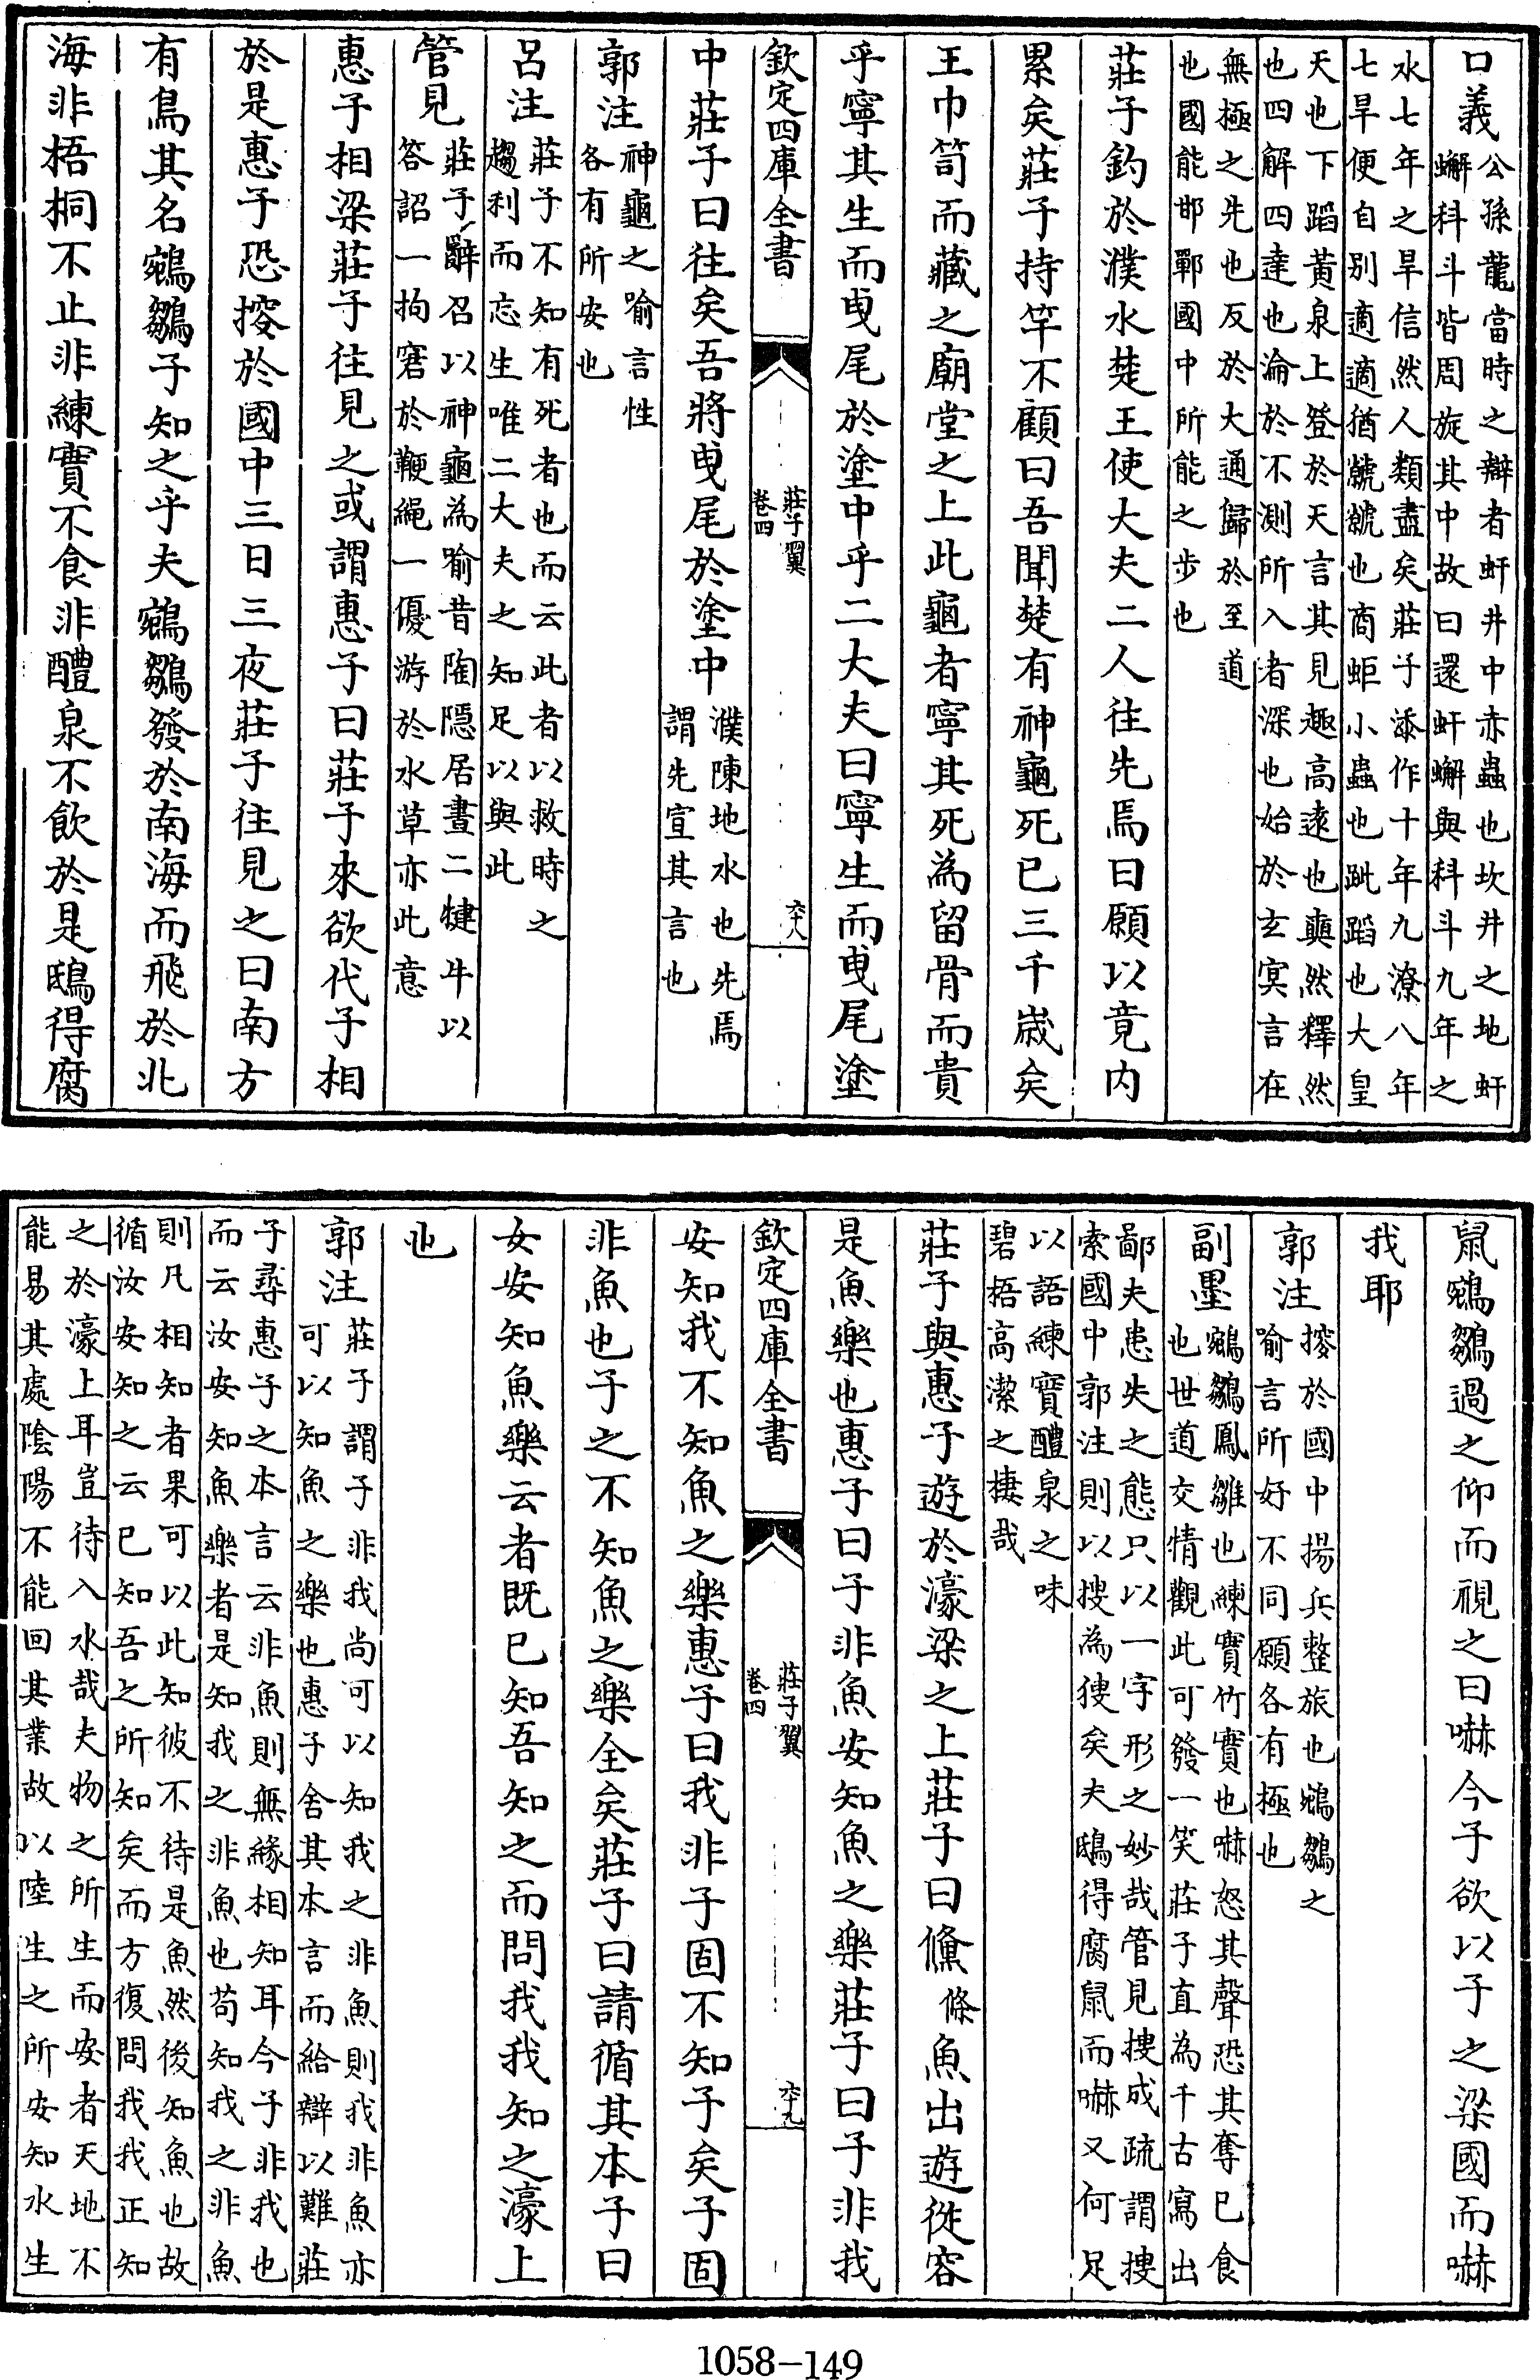 口義公孫龍當時之辯者虷井中赤蟲也坎井之地虷
蠏科斗皆周旋其中故曰還虷蠏與科斗九年之
水七年之旱信然人類盡矣莊子添作十年九潦八年
七旱便自别適適猶虩虩也商蚷小蟲也跐蹈也大皇
天也下蹈黃泉上登於天言其見趣高逺也奭然釋然
也四解四達也淪於不測所入者深也始於玄㝠言在
無極之先也反於大通歸於至道
也國能邯鄲國中所能之步也
莊子釣於濮水楚王使大夫二人往先焉曰願以竟内
累矣莊子持竿不顧曰吾聞楚有神龜死已三千嵗矣
王巾笥而藏之廟堂之上此龜者寧其死為留骨而貴
乎寧其生而曵尾於塗中乎二大夫曰寧生而曵尾塗
欽定四庫全書
莊子翼
卷四
六十八
中莊子曰往矣吾將曵尾於塗中濮陳地水也先焉
謂先宣其言也
郭注神龜之喻言性
各有所安也
呂注莊子不知有死者也而云此者以救時之
趨利而忘生唯二大夫之知足以與此
管見莊子辭召以神龜為喻昔陶隱居畫二犍牛以
答詔一拘窘於鞭繩一優游於水草亦此意
惠子相梁莊子往見之或謂惠子曰莊子來欲代子相
於是惠子恐搜於國中三日三夜莊子往見之曰南方
有鳥其名鵷鶵子知之乎夫鵷鶵發於南海而飛於北
海非梧桐不止非練實不食非醴泉不飲於是鴟得腐
鼠鵷鶵過之仰而視之曰嚇今子欲以子之梁國而嚇
我耶
郭注搜於國中揚兵整旅也鵷鶵之
喻言所好不同願各有極也
副墨鵷鶵鳳雛也練實竹實也嚇怒其聲恐其奪已食
也世道交情觀此可發一笑莊子直為千古寫出
鄙夫患失之態只以一字形之妙哉管見搜成疏謂搜
索國中郭注則以搜為獀矣夫鴟得腐鼠而嚇又何足
以語練寳醴泉之味
碧梧高潔之棲哉
莊子與惠子遊於濠梁之上莊子曰鯈條魚出遊從容
是魚樂也惠子曰子非魚安知魚之樂莊子曰子非我
欽定四庫全書
莊子翼
卷四
六十九
安知我不知魚之樂惠子曰我非子固不知子矣子固
非魚也子之不知魚之樂全矣莊子曰請循其本子曰
女安知魚樂云者既已知吾知之而問我我知之濠上
也
郭注莊子謂子非我尚可以知我之非魚則我非魚亦
可以知魚之樂也惠子舍其本言而給辯以難莊
子尋惠子之本言云非魚則無緣相知耳今子非我也
而云汝安知魚樂者是知我之非魚也苟知我之非魚
則凡相知者果可以此知彼不待是魚然後知魚也故
循汝安知之云已知吾之所知矣而方復問我我正知
之於濠上耳豈待入水哉夫物之所生而安者天地不
能易其處陰陽不能回其業故以陸生之所安知水生
1058-149